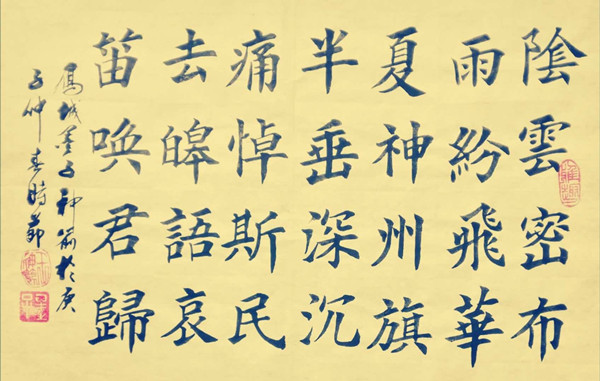 陰雲密布
雨紛飛華
夏神州旗
半垂深沉
痛悼斯民
去皞語哀
笛喚君歸
城墨子神箭於庚
子仲春時節